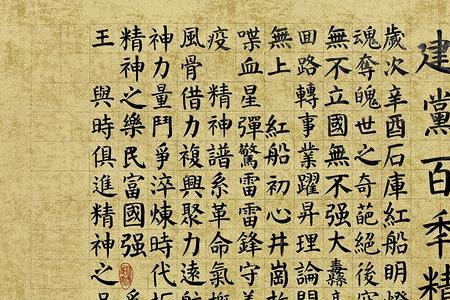 建黨百年精
歲次辛酉石庫紅船明
魂奪魄世之奇葩絕後
無不立國無不强大
回路轉事業躍昇理論
無上 紅船初心井崗
喋血星彈驚雷雷鋒守
疫 精神譜系革命氣
風骨借力複興聚力遠
神力量鬥爭淬煉時代
精神之樂民富國强
王 與時俱進精神之